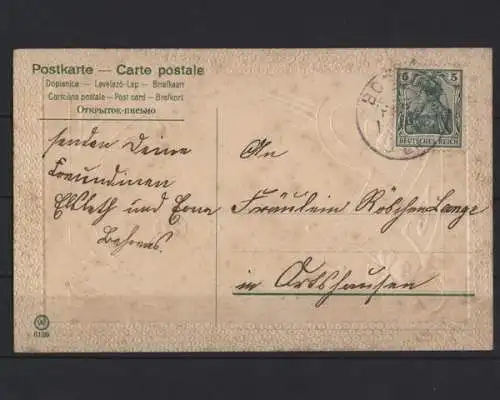 Postkarte — Carte postale
Dopisnice — Levelező-Lap — Briefkaart
Cartolina postale — Post card — Brefkort
Открытое письмо
5 5
DEUTSCHES REICH
senden Deine
Freundinnen
Elsbeth und Erna
Behrens.
An
Fräulein Röschen Lange
in Ortshausen
6199